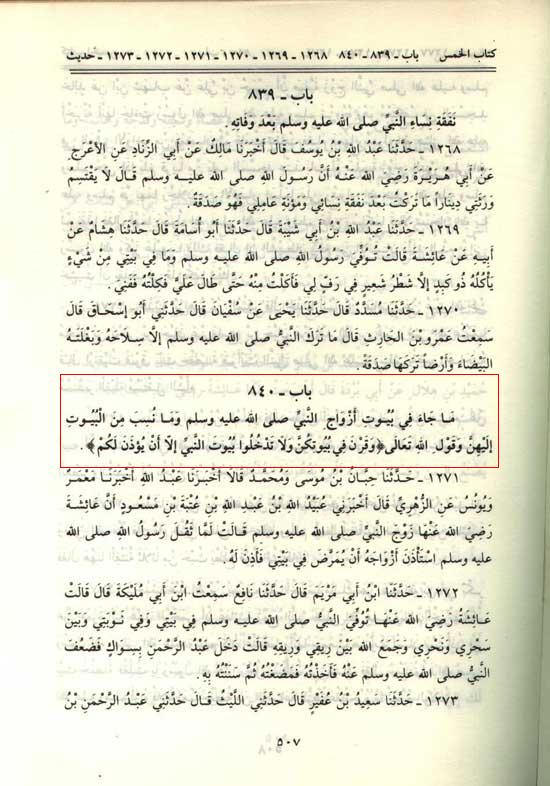 كتاب الخمس باب - ٨٣٩ - ٨٤٠ ١٢٦٨ - ١٢٦٩ - ١٢٧٠ - ١٢٧١ - ١٢٧٢ - ١٢٧٣ - حديث
باب - ٨٣٩
نَفَقَةِ نِسَاءِ النَّبِيِّ صلى الله عليه وسلم بَعْدَ وَفَاتِهِ.
١٢٦٨ - حَدَّثَنَا عَبْدُ اللهِ بْنُ يُوسُفَ قَالَ أَخْبَرَنَا مَالِكٌ عَنْ أَبِي الزِّنَادِ عَنِ الأَعْرَجِ
عَنْ أَبِي هُرَيْرَةَ رَضِيَ اللهُ عَنْهُ أَنَّ رَسُولَ اللهِ صلى الله عليه وسلم قَالَ لاَ يَقْتَسِمْ
وَرَثَتِي دِينَاراً مَا تَرَكْتُ بَعْدَ نَفَقَةِ نِسَائِي وَمَؤُنَةِ عَامِلِي فَهُوَ صَدَقَةٌ.
١٢٦٩ - حَدَّثَنَا عَبْدُ اللهِ بْنُ أَبِي شَيْبَةَ قَالَ حَدَّثَنَا أَبُو أُسَامَةَ قَالَ حَدَّثَنَا هِشَامٌ عَنْ
أَبِيهِ عَنْ عَائِشَةَ قَالَتْ تُوُفِّيَ رَسُولُ اللهِ صلى الله عليه وسلم وَمَا فِي بَيْتِي مِنْ شَيْءٍ
يَأْكُلُهُ ذُو كَبِدٍ إِلاَّ شَطْرُ شَعِيرٍ فِي رَفٍّ لِي فَأَكَلْتُ مِنْهُ حَتَّى طَالَ عَلَيَّ فَكِلْتُهُ فَفَنِيَ.
١٢٧٠ - حَدَّثَنَا مُسَدَّدٌ قَالَ حَدَّثَنَا يَحْيَى عَنْ سُفْيَانَ قَالَ حَدَّثَنِي أَبُو إِسْحَاقَ قَالَ
سَمِعْتُ عَمْرَو بْنَ الحَارِثِ قَالَ مَا تَرَكَ النَّبِيُّ صلى الله عليه وسلم إِلاَّ سِلاَحَهُ وَبَغْلَتَهُ
الْبَيْضَاءَ وَأَرْضاً تَرَكَهَا صَدَقَةً.
باب - ٨٤٠
مَا جَاءَ فِي بُيُوتِ أَزْوَاجِ النَّبِيِّ صلى الله عليه وسلم وَمَا نُسِبَ مِنَ الْبُيُوتِ
إِلَيْهِنَّ وَقَوْلِ اللهِ تَعَالَى ﴿وَقَرْنَ فِي بُيُوتِكُنَّ وَلاَ تَدْخُلُوا بُيُوتَ النَّبِيِّ إِلاَّ أَنْ يُؤْذَنَ لَكُمْ﴾.
١٢٧١ - حَدَّثَنَا حِبَّانُ بْنُ مُوسَى وَمُحَمَّدٌ قَالاَ أَخْبَرَنَا عَبْدُ اللهِ أَخْبَرَنَا مَعْمَرٌ
وَيُونُسُ عَنِ الزُّهْرِيِّ قَالَ أَخْبَرَنِي عُبَيْدُ اللهِ بْنُ عَبْدِ اللهِ بْنِ عُتْبَةَ بْنِ مَسْعُودٍ أَنَّ عَائِشَةَ
رَضِيَ اللهُ عَنْهَا زَوْجَ النَّبِيِّ صلى الله عليه وسلم قَالَتْ لَمَّا ثَقُلَ رَسُولُ اللهِ صلى الله
عليه وسلم اسْتَأْذَنَ أَزْوَاجَهُ أَنْ يُمَرَّضَ فِي بَيْتِي فَأَذِنَّ لَهُ.
١٢٧٢ - حَدَّثَنَا ابْنُ أَبِي مَرْيَمَ قَالَ حَدَّثَنَا نَافِعٌ سَمِعْتُ ابْنَ أَبِي مُلَيْكَةَ قَالَ قَالَتْ
عَائِشَةُ رَضِيَ اللهُ عَنْهَا تُوُفِّيَ النَّبِيُّ صلى الله عليه وسلم فِي بَيْتِي وَفِي نَوْبَتِي وَبَيْنَ
سَحْرِي وَنَحْرِي وَجَمَعَ اللهُ بَيْنَ رِيقِي وَرِيقِهِ قَالَتْ دَخَلَ عَبْدُ الرَّحْمَنِ بِسِوَاكٍ فَضَعُفَ
النَّبِيُّ صلى الله عليه وسلم عَنْهُ فَأَخَذْتُهُ فَمَضَغْتُهُ ثُمَّ سَنَنْتُهُ بِهِ.
١٢٧٣ - حَدَّثَنَا سَعِيدُ بْنُ عُفَيْرٍ قَالَ حَدَّثَنِي اللَّيْثُ قَالَ حَدَّثَنِي عَبْدُ الرَّحْمَنِ بْنُ
٥٠٧